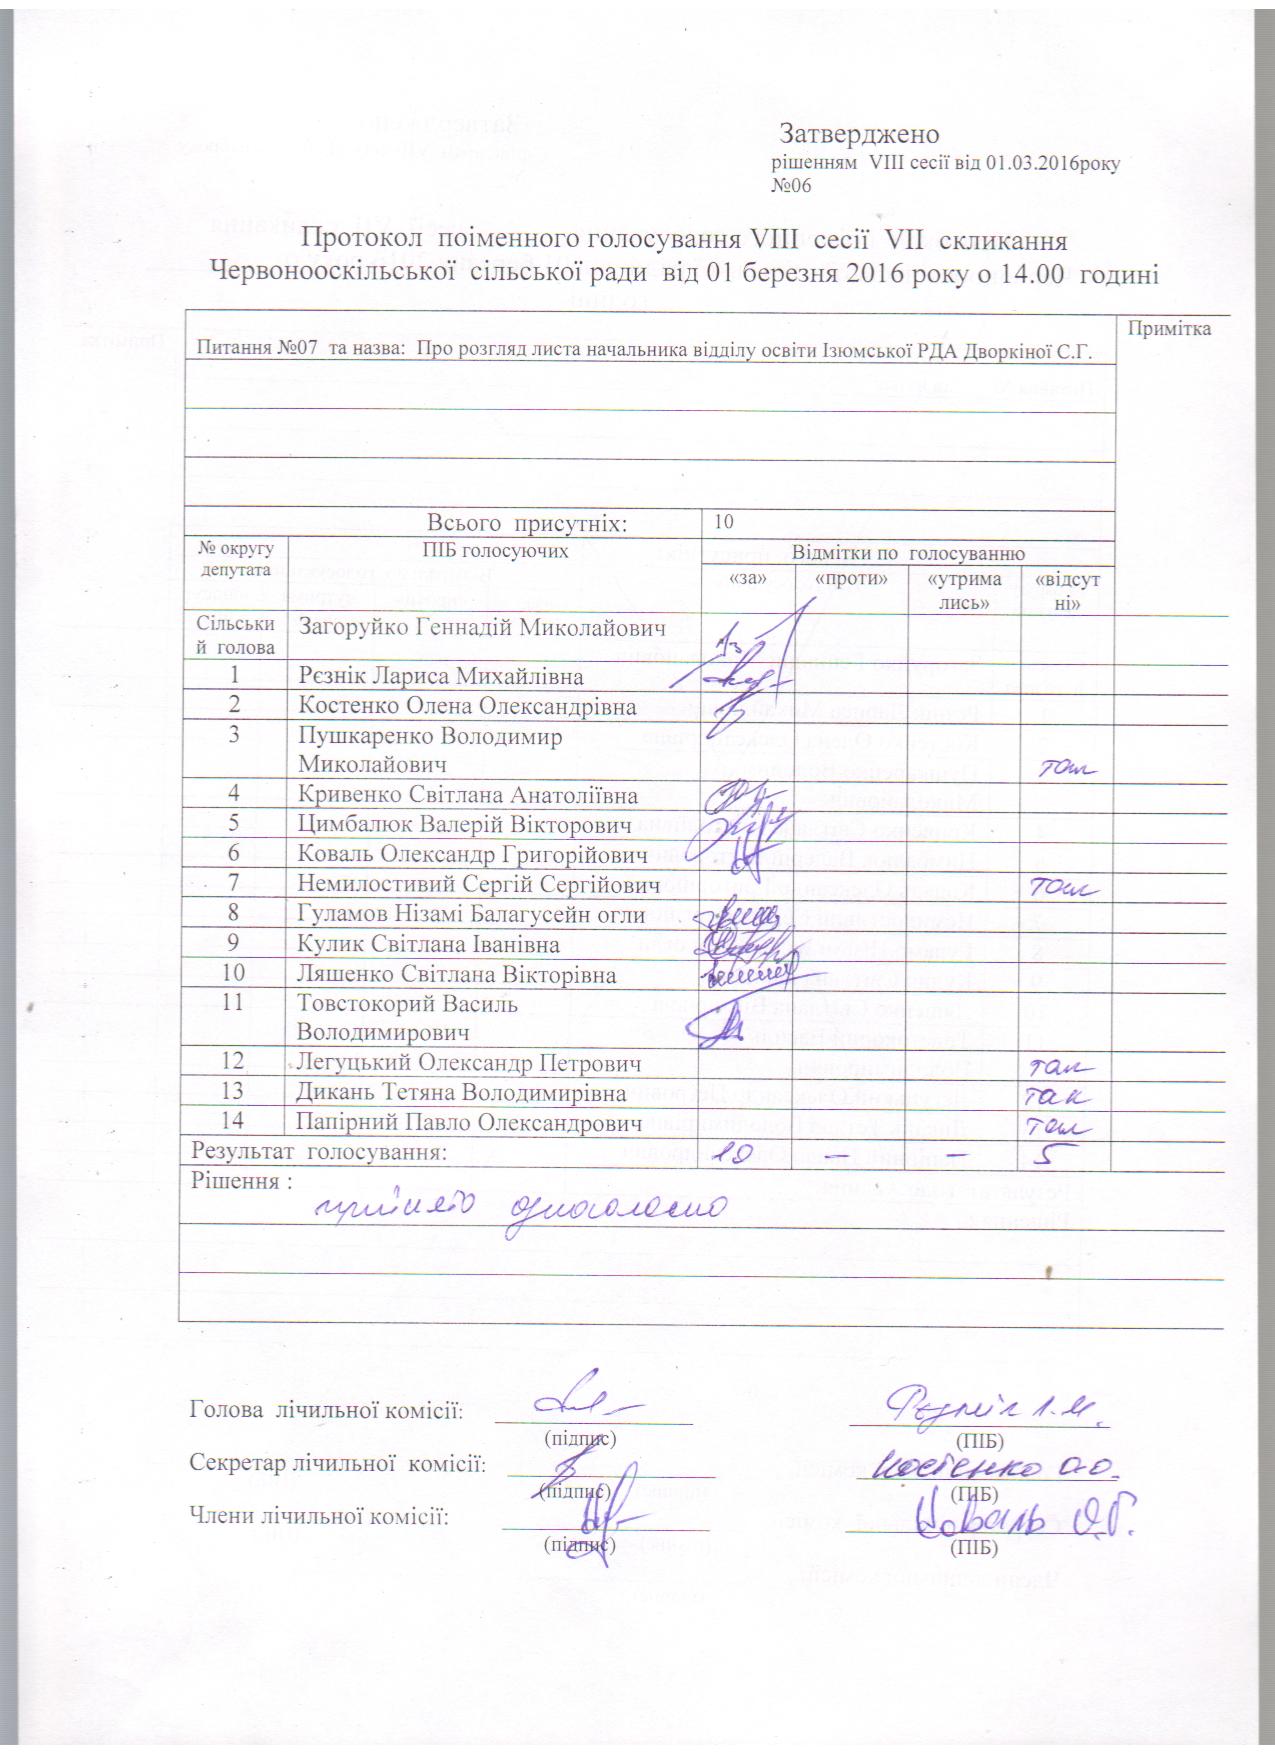 Затверджено
рішенням VIII сесії від 01.03.2016року
№06
Протокол поіменного голосування VIII сесії VII скликання
Червонооскільської сільської ради від 01 березня 2016 року о 14.00 годині
Питання №07 та назва: Про розгляд листа начальника відділу освіти Ізюмської РДА Дворкіної С.Г.
Примітка
Всього присутніх: 10
№ округу депутата ПІБ голосуючих Відмітки по голосуванню
«за» «проти» «утрима лись» «відсут ні»
Сільськи й голова Загоруйко Геннадій Миколайович
1 Рєзнік Лариса Михайлівна
2 Костенко Олена Олександрівна
3 Пушкаренко Володимир
Миколайович так
4 Кривенко Світлана Анатоліївна
5 Цимбалюк Валерій Вікторович
6 Коваль Олександр Григорійович
7 Немилостивий Сергій Сергійович так
8 Гуламов Нізамі Балагусейн огли
9 Кулик Світлана Іванівна
10 Ляшенко Світлана Вікторівна
11 Товстокорий Василь
Володимирович
12 Легуцький Олександр Петрович так
13 Дикань Тетяна Володимирівна так
14 Папірний Павло Олександрович так
Результат голосування: 10 – – 5
Рішення :
прийнято одноголосно
Голова лічильної комісії: Рєзнік Л.М.
(підпис) (ПІБ)
Секретар лічильної комісії: Костенко О.О.
(підпис) (ПІБ)
Члени лічильної комісії: Коваль О.Г.
(підпис) (ПІБ)